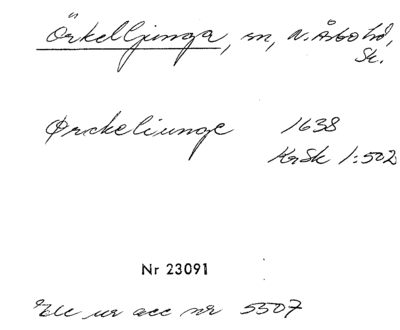 Örkelljunga, sn, N. Åsbo hd,
Sk.
Ørckeliunge 1638
KrSk 1:502
Nr 23091
Exc ur acc nr 5507